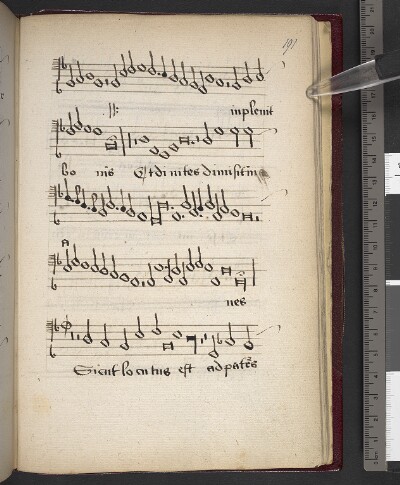 inplevit
bo nis Et divites dimisit in
nes
Sicut locutus est ad patres